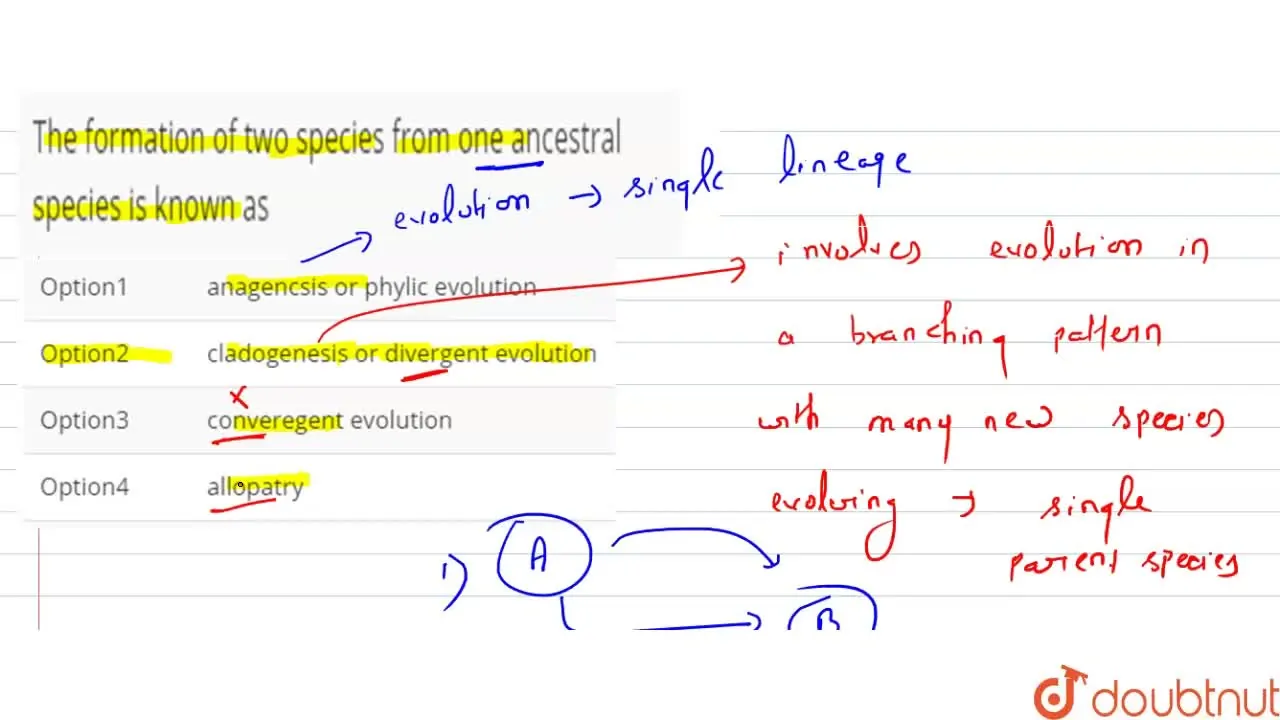 The formation of two species from one ancestral
species is known as
evolution → single lineage
Option1 anagencsis or phylic evolution
Option2 cladogenesis or divergent evolution
x
Option3 converegent evolution
Option4 allopatry
involves evolution in
a branching pattern
with many new species
evolving → single
parent species
1) A
B
doubtnut